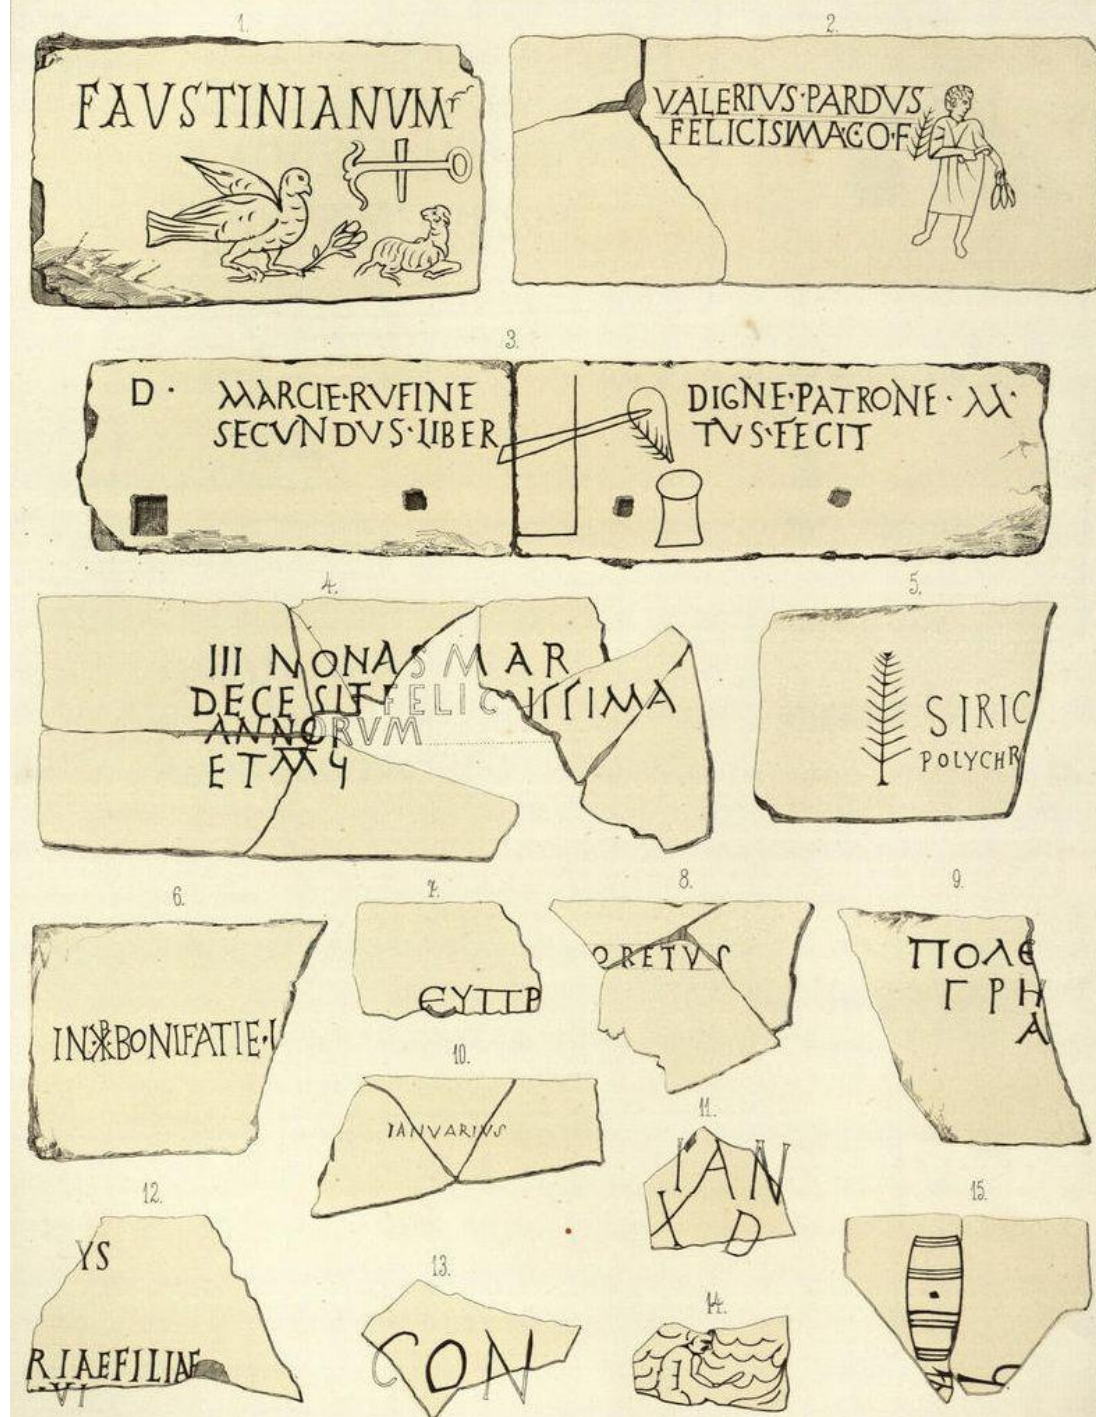 1.
FAVSTINIANVM
2.
VALERIVS·PARDVS
FELICISIMAE·CO·F
3.
D· MARCIE·RVFINE DIGNE·PATRONE· M·
SECVNDVS·LIBER TVS·FECIT
4.
III NONAS MAR
DECESIT FELICISSIMA
ANNORVM
ET M
5.
SIRIC
POLYCHR
6.
IN ☧ BONIFATIE·
7.
ЄΥΠΡ
8.
ORETVS
9.
ΠΟΛЄ
ΓΡΗ
Α
10.
IANVARIVS
11.
IAN
X D
12.
YS
RIAEFILIAE
VI
13.
CON
14.
15.